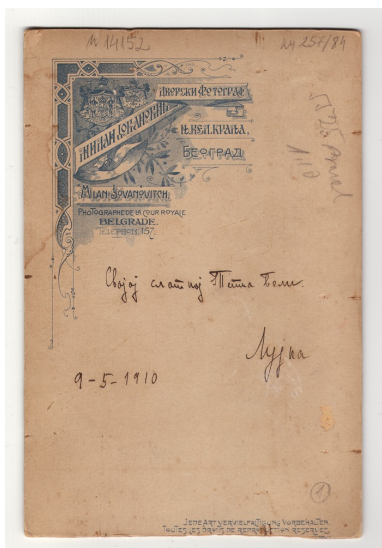 n 14152
МИЛАН ЈОВАНОВИЋ
ДВОРСКИ ФОТОГРАФ
Њ. ВЕЛ. КРАЉА
БЕОГРАД
MILAN JOVANOVITCH
PHOTOGRAPHE DE LA COUR ROYALE
BELGRADE.
TELEPHON. 157.
Својој слаткој Тетка Бели.
Лујка
9-5-1910
1
JEDE ART VERVIELFÄLTIGUNG VORBEHALTEN.
TOUTES LES DROITS DE REPRODUCTION RESERVÉS